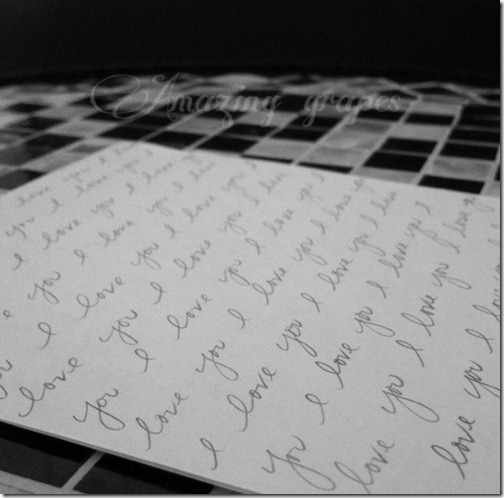 Amazing grapes
love you I
you I love you I
I love you I love
you I love you I love
you I love you I love
love you I love you I
you I love you I love
love you I love you I
I love you I love you I love
you I love you I love you I
love you I love you I love
love you I love